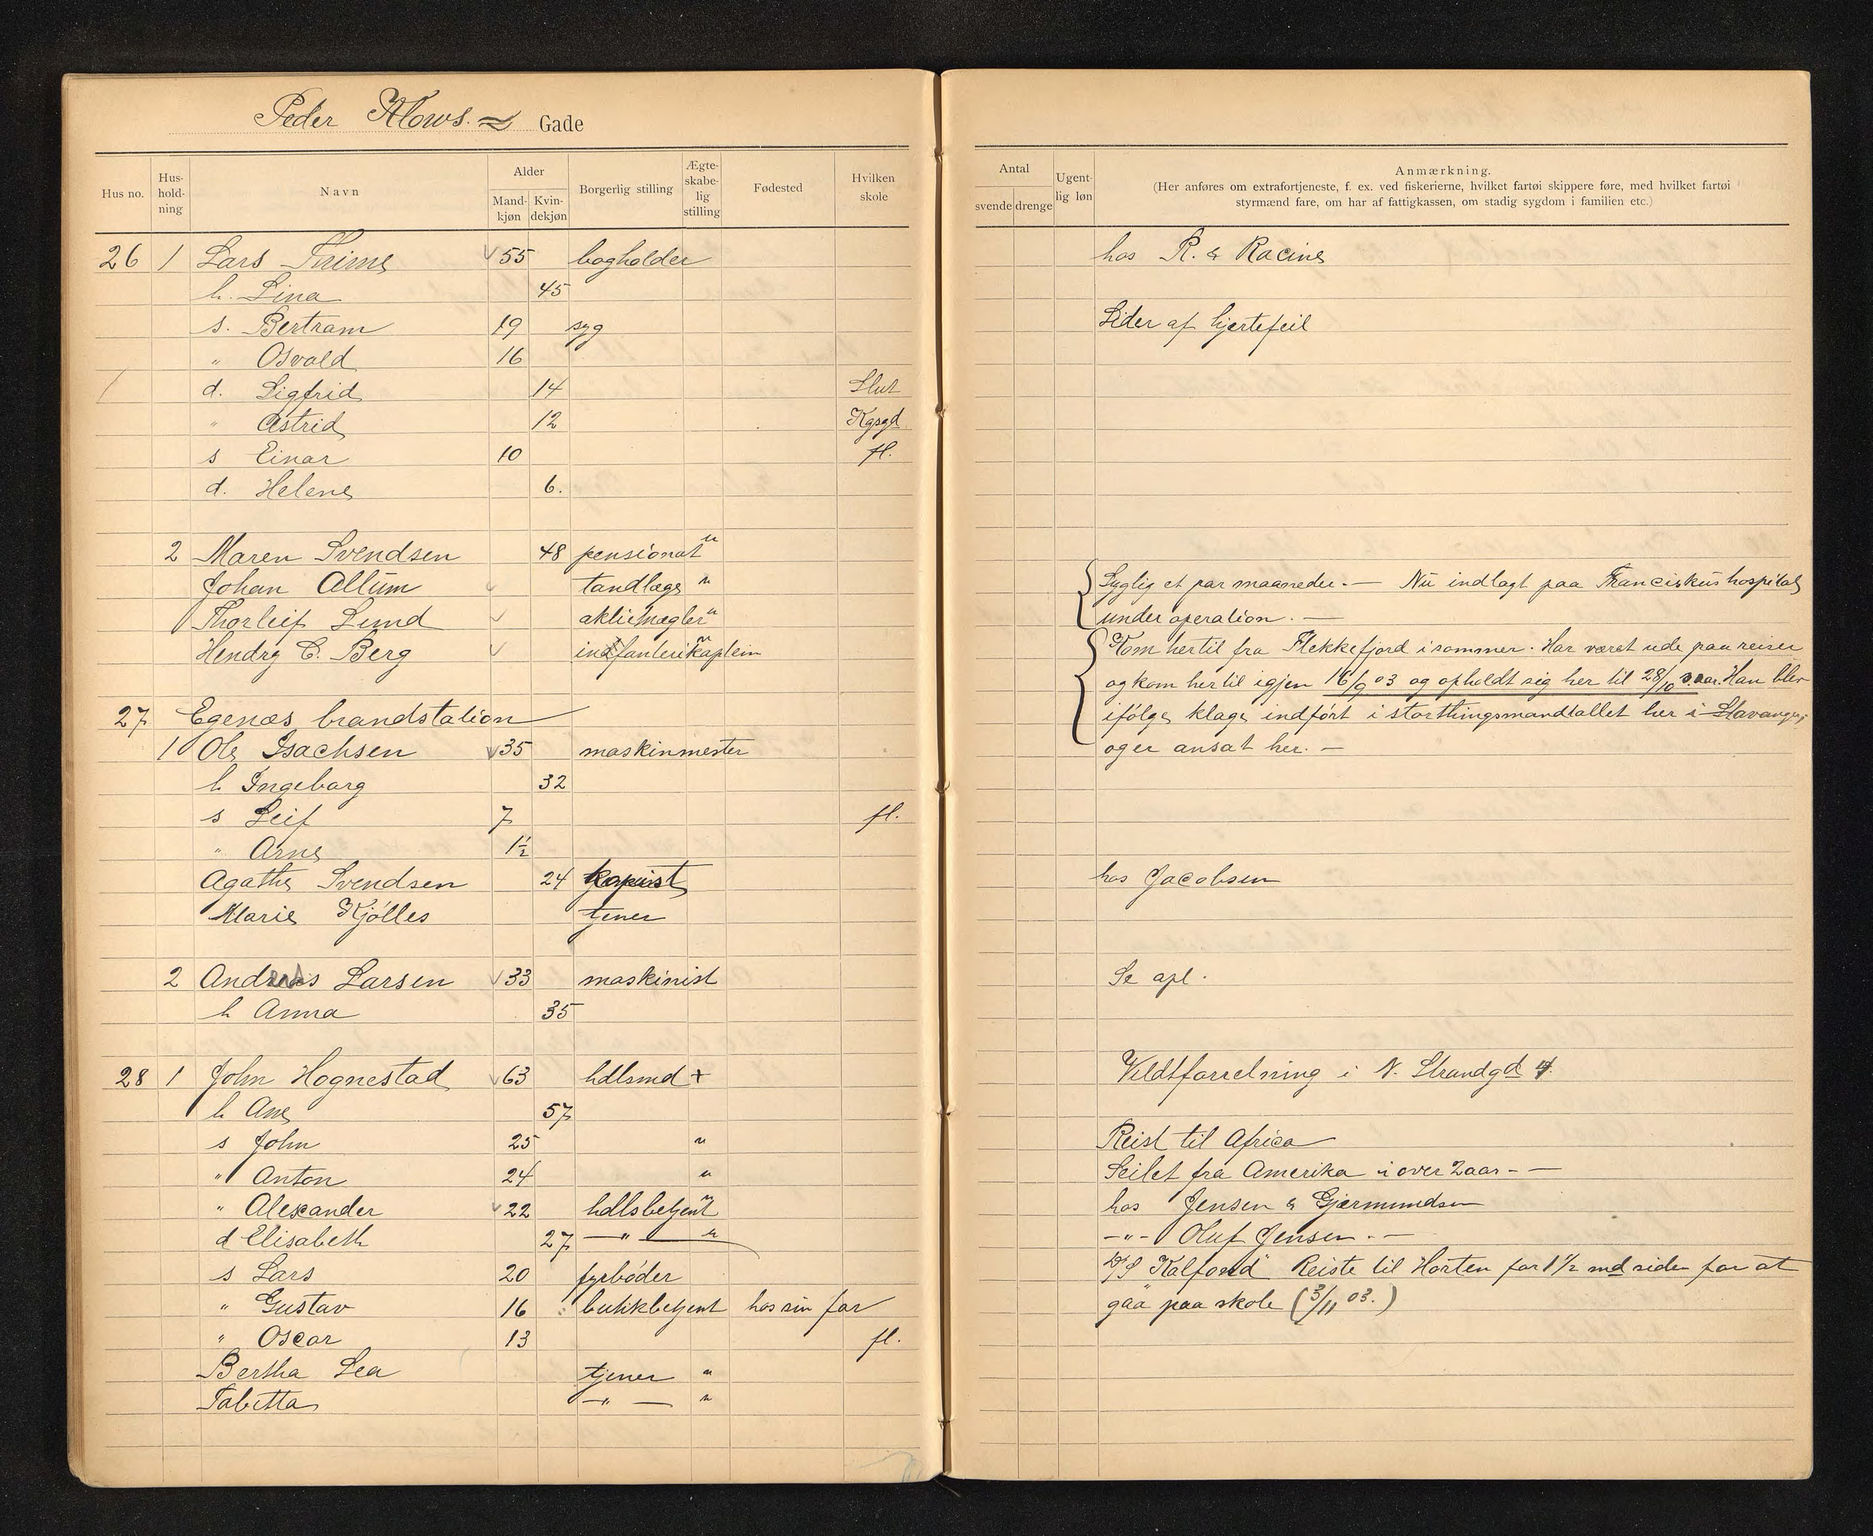 Peder Klows. Gade
Hus no. Hus-hold-ning Navn Alder Mand-kjøn Kvin-dekjøn Borgerlig stilling Ægte-skabe-lig stilling Fødested Hvilken skole
Antal svende drenge Ugent-lig løn Anmærkning.
(Her anføres om extrafortjeneste, f. ex. ved fiskerierne, hvilket fartøi skippere føre, med hvilket fartøi
styrmænd fare, om har af fattigkassen, om stadig sygdom i familien etc.)
26 1 Lars Thime 55 bogholder hos R. & Racine
h. Lina 45
s. Bertram 19 syg Lider af hjertefeil
" Osvald 16
d. Sigfrid 14 Slut
" Astrid 12 Kgsgd
s Einar 10 fl.
d. Helene 6.
2 Maren Svendsen 48 pensionat u
Johan Allum tandlæge u Syglig et par maaneder. — Nu indlagt paa Franciskus hospital
Thorleif Lund aktiemægler u under operation. —
Hendry C. Berg infanterikaptein u Kom hertil fra Flekkefjord i sommer. Har været ude paa reiser
og kom hertil igjen 16/9 03 og opholdt sig her til 28/10 s. aar. Han blev
27 Egenæs brandstation ifølge klage indført i storthingsmandtallet her i Stavanger,
1 Ole Isachsen 35 maskinmester og er ansat her. —
h Ingeborg 32
s Leif 7 fl.
" Arne 1½
Agathe Svendsen 24 kopist hos Jacobsen
Marie Kjølles tjener
2 Andreas Larsen 33 maskinist Se apl.
h Anna 35
28 1 John Hognestad 63 hdlsmd + Vildtforretning i N. Strandgd 4.
h Ane 57
s John 25 u Reist til Africa
" Anton 24 u Seilet fra Amerika i over 2 aar - —
" Alexander 22 hdlsbetjent u hos Jensen & Gjermundsen
d Elisabeth 27 — " — u — " — Oluf Jensen. —
s Lars 20 fyrbøder D/S "Kalfond" Reiste til Horten for 1 1/2 md siden for at
" Gustav 16 butikbetjent hos sin far gaa paa skole (3/11 03.)
" Oscar 13 fl.
Bertha Lea tjener u
Tabitta — " — u